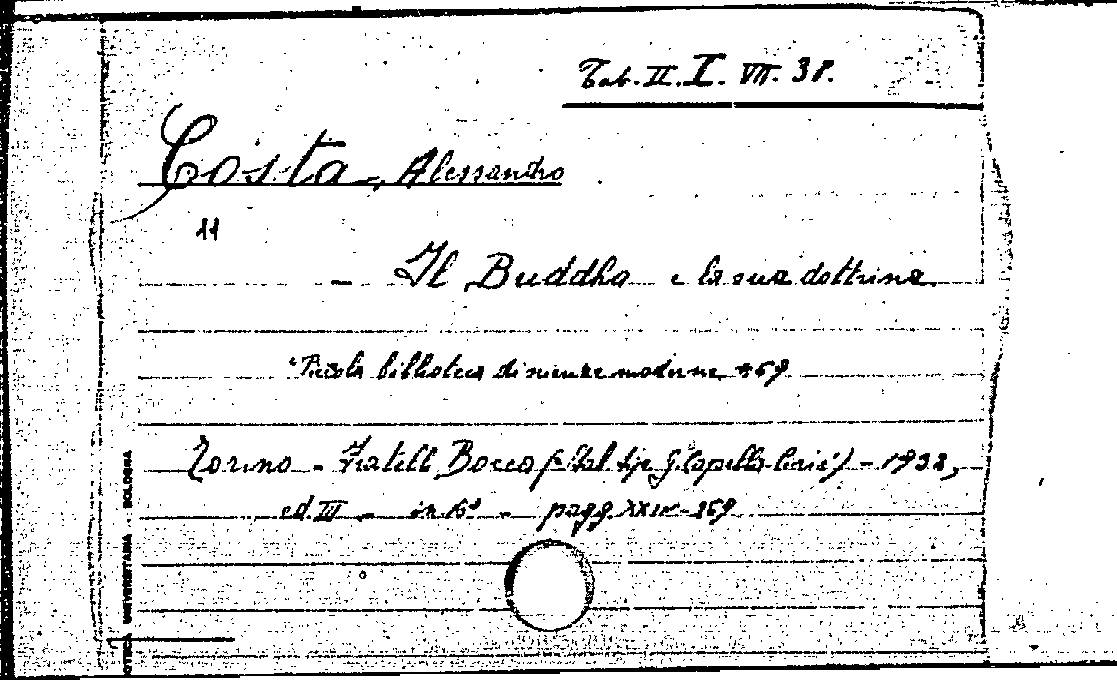 Tab. II. I. VII. 38.
Costa, Alessandro
11
- Il Buddha e la sua dottrina
"Piccola biblioteca di scienze moderne 
Torino - Fratelli Bocca - 1932,
ed III - in 16° - pagg. XXIV-
UNIVERSITARIA - BOLOGNA